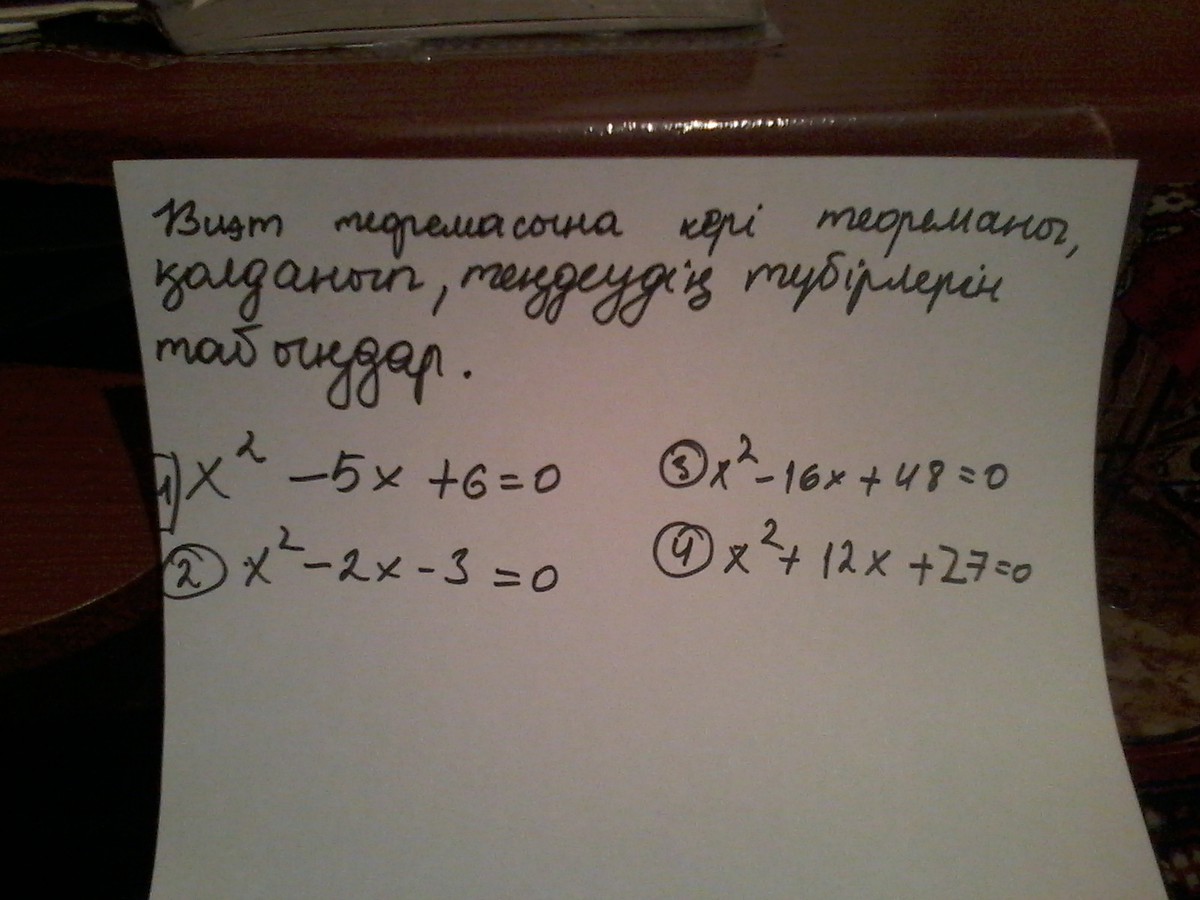 Виэт теоремасына кері теореманы,
қолданып, теңдеудің түбірлерін
табыңдар.
1) x² - 5x + 6 = 0
② x² - 2x - 3 = 0
③ x² - 16x + 48 = 0
④ x² + 12x + 27 = 0